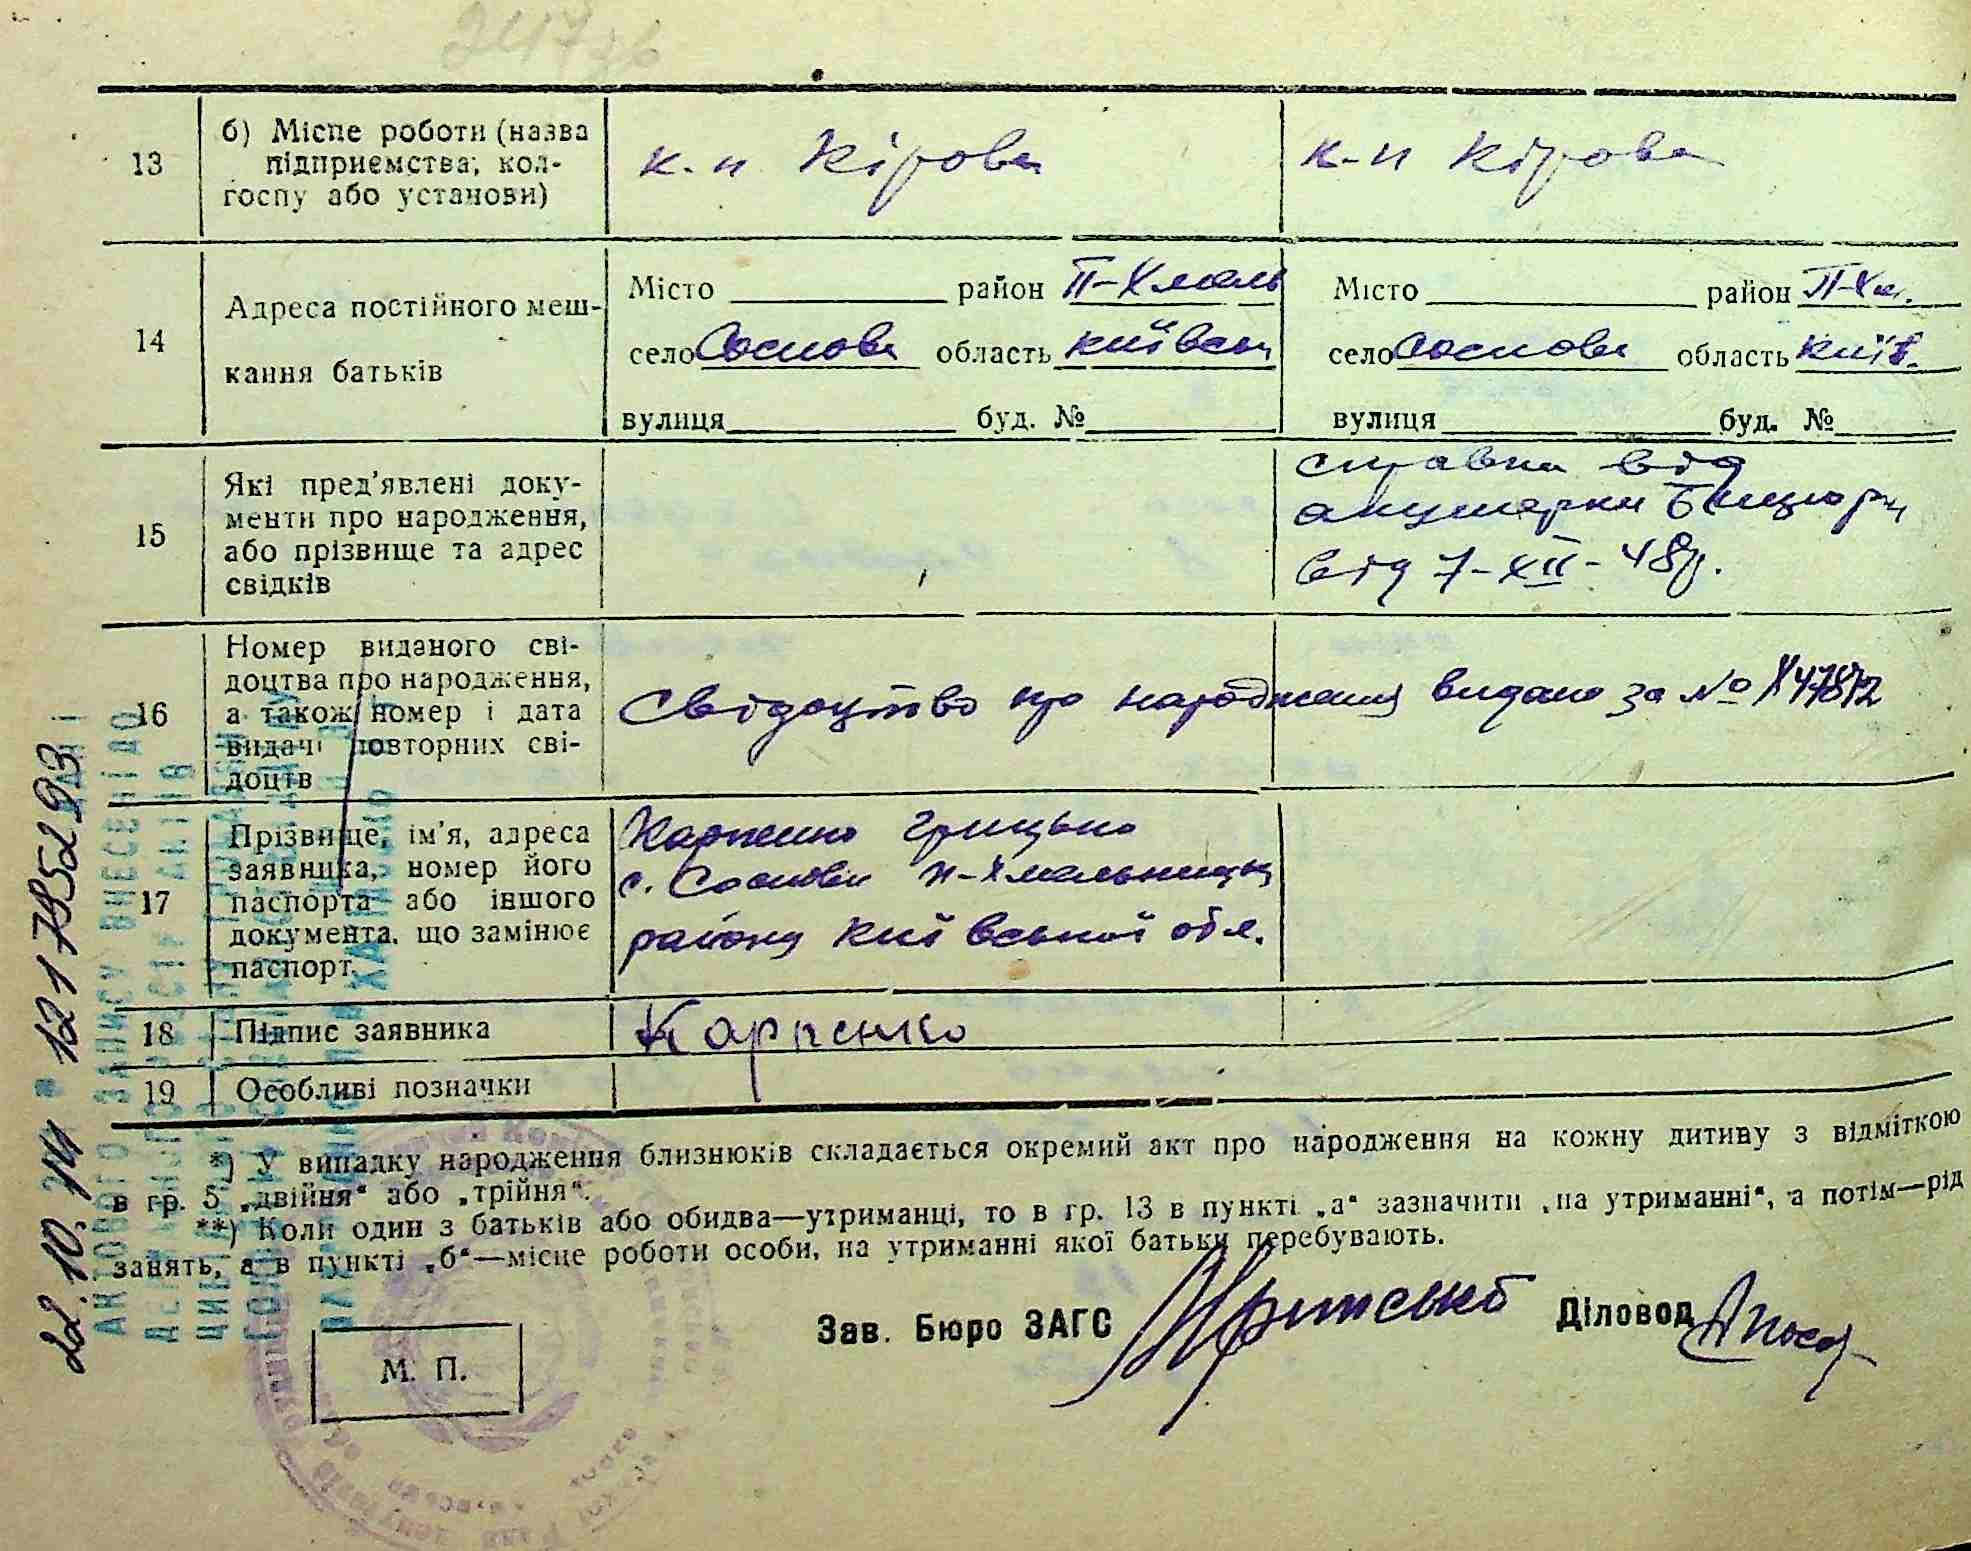 13
б) Місце роботи (назва
підприємства, кол-
госпу або установи)
к-п Кірова
к-п Кірова
14
Адреса постійного меш-
кання батьків
Місто район П-Хмель
село Соснова область Київськ
вулиця буд. №
Місто район П-Хм.
село Соснова область Київ.
вулиця буд. №
15
Які пред'явлені доку-
менти про народження,
або прізвище та адрес
свідків
справка від
акушерки
від 7-XII-48р.
16
Номер виданого сві-
доцтва про народження,
а також номер і дата
видачі повторних сві-
доцтв
Свідоцтво про народження видано за №
17
Прізвище, ім'я, адреса
заявника, номер його
паспорта або іншого
документа, що замінює
паспорт.
Карпенко Грицько
с. Соснова П-Хмельницьк
району Київської обл.
18
Підпис заявника
Карпенко
19
Особливі позначки
*) У випадку народження близнюків складається окремий акт про народження на кожну дитину з відміткою
в гр. 5 „двійня“ або „трійня“.
**) Коли один з батьків або обидва—утриманці, то в гр. 13 в пункті „а“ зазначити „на утриманні“, а потім—рід
занять, а в пункті „б“—місце роботи особи, на утриманні якої батьки перебувають.
Зав. Бюро ЗАГС
Діловод
М. П.
22.10.
АКТОВОГО ЗАПИСУ ВНЕСЕНІ ДО